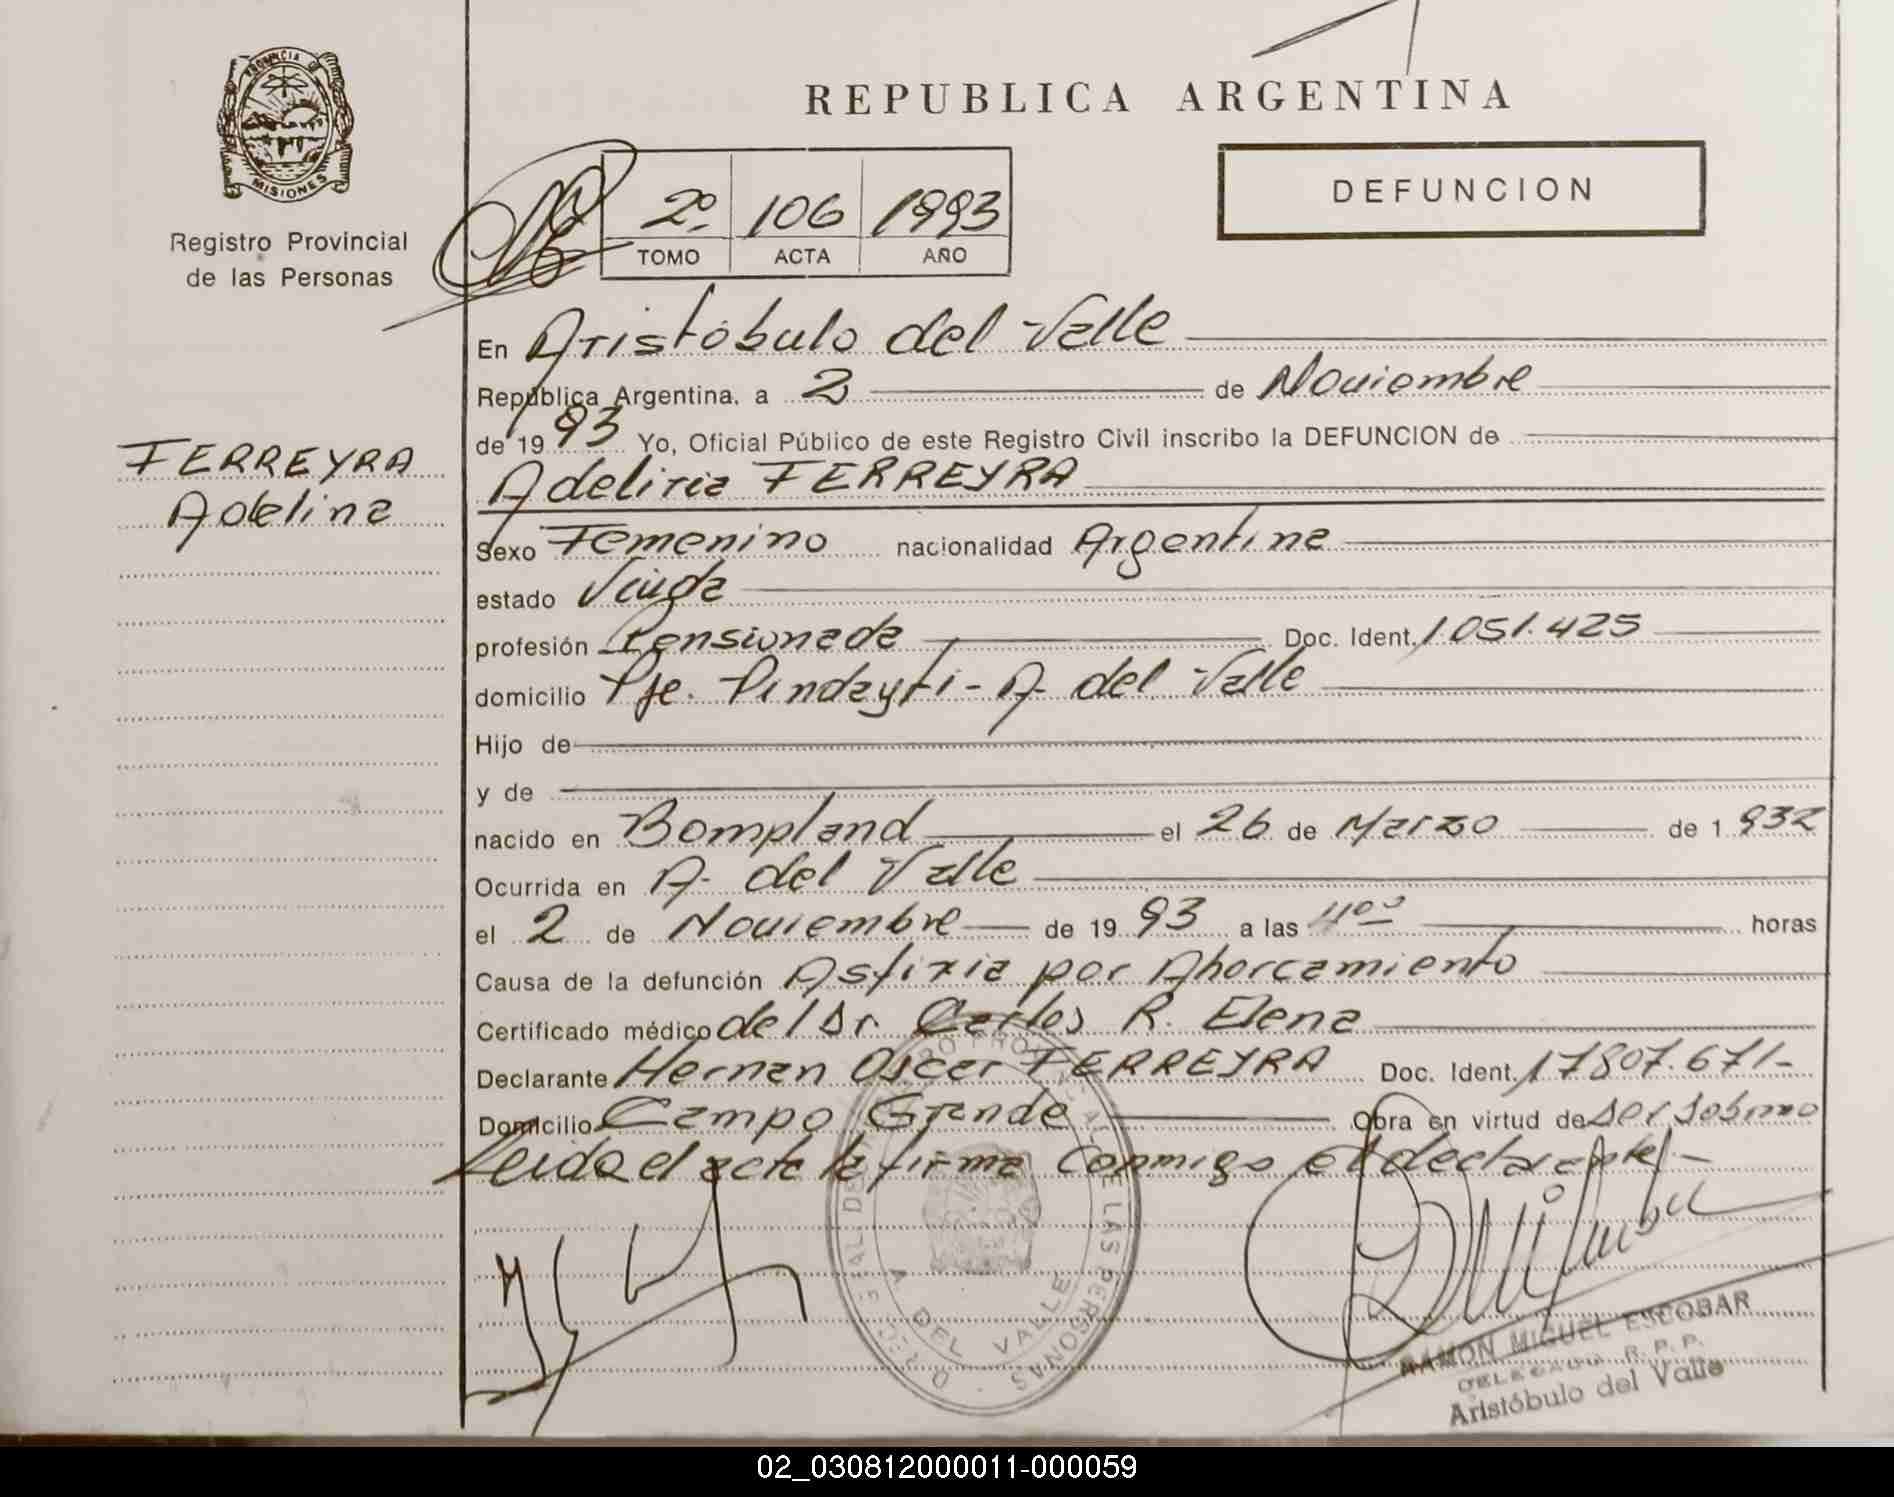 REPUBLICA ARGENTINA
PROVINCIA DE
MISIONES
Registro Provincial
de las Personas
2º 106 1993
TOMO ACTA AÑO
DEFUNCION
FERREYRA
Adelina
En Aristóbulo del Valle
República Argentina, a 2 de Noviembre
de 1993 Yo, Oficial Público de este Registro Civil inscribo la DEFUNCION de
Adelina FERREYRA
Sexo Femenino nacionalidad Argentina
estado Viuda
profesión Pensionada Doc. Ident. 1.051.425
domicilio Pje. Pindayti - A. del Valle
Hijo de
y de
nacido en Bompland el 26 de Marzo de 1932
Ocurrida en A. del Valle
el 2 de Noviembre de 1993 a las horas
Causa de la defunción Asfixia por Ahorcamiento
Certificado médico del Dr. Carlos R. Elena
Declarante Hernan Oscar FERREYRA Doc. Ident. 17807.671-
Domicilio Campo Grande Obra en virtud de ser sobrino
Leida el acta la firma conmigo el declarante-
A. DEL VALLE
DE LAS PERSONAS
RAMON MIGUEL ESCOBAR
DELEGADO R. P. P.
Aristóbulo del Valle
02_030812000011-000059